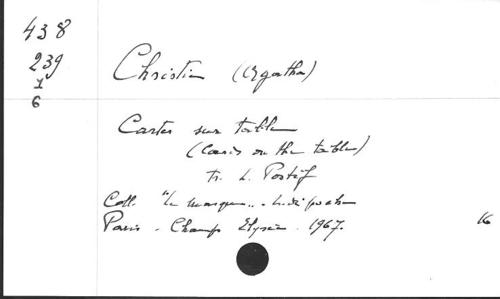 438
239
1
6
Christie (Agatha)
Cartes sur table
(Cards on the table)
Tr. L. Postif
Coll. "Le masque"
Paris - Champs Elysées. 1967.
16